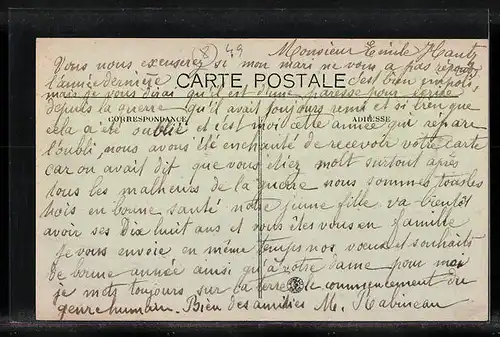 8 49
Monsieur Emile Hautz
Vous nous excuserez si mon mari ne vous a pas répondu
l'année dernière c'est bien impoli,
CARTE POSTALE
mais je vous dirai qu'il est d'une paresse pour écrire
depuis la guerre qu'il avait toujours remit et si bien que
CORRESPONDANCE ADRESSE
cela a été oublié et c'est moi cette année qui répare
l'oubli nous avons été enchanté de recevoir votre carte
car on avait dit que vous étiez mort surtout après
tous les malheurs de la guerre nous sommes tous les
trois en bonne santé notre jeune fille va bientôt
avoir ses dix huit ans et vous êtes vous en famille
Je vous envoie en même temps nos vœux et souhaits
de bonne année ainsi qu'à votre dame pour moi
je mets toujours sur la terre le commencement du
genre humain. Bien des amitiés M. Rabineau